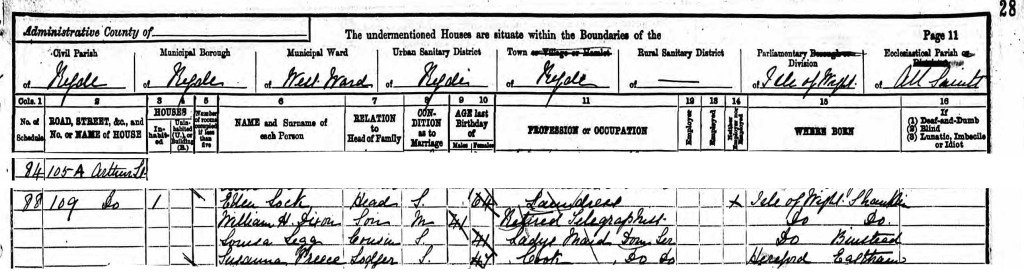 28
Administrative County of
The undermentioned Houses are situate within the Boundaries of the
Page 11
Civil Parish
of Ryde
Municipal Borough
of Ryde
Municipal Ward
of West Ward
Urban Sanitary District
of Ryde
Town or Village or Hamlet
of Ryde
Rural Sanitary District
of —
Parliamentary Borough or Division
of Isle of Wight
Ecclesiastical Parish or District
of All Saints
Cols. 1 2 3 4 5 6 7 8 9 10 11 12 13 14 15 16
No. of Schedule
ROAD, STREET, &c., and No. or NAME of HOUSE
HOUSES
Inhabited
Uninhabited (U.) or Building (B.)
Number of rooms occupied if less than five
NAME and Surname of each Person
RELATION to Head of Family
CONDITION as to Marriage
AGE last Birthday of
Males Females
PROFESSION or OCCUPATION
Employer
Employed
Neither Employer nor Employed
WHERE BORN
If
(1) Deaf-and-Dumb
(2) Blind
(3) Lunatic, Imbecile or Idiot
84 105A Arthur St
88 109 Do 1 Ellen Sock Head S. 64 Laundress x Isle of Wight Shanklin
William H. Dixon Son M 41 Retired Telegraphist Do Do.
Louisa Legg Cousin S. 41 Ladys Maid Dom Ser Do Binstead
Susanna Preece Lodger S. Cook Do Do Hereford